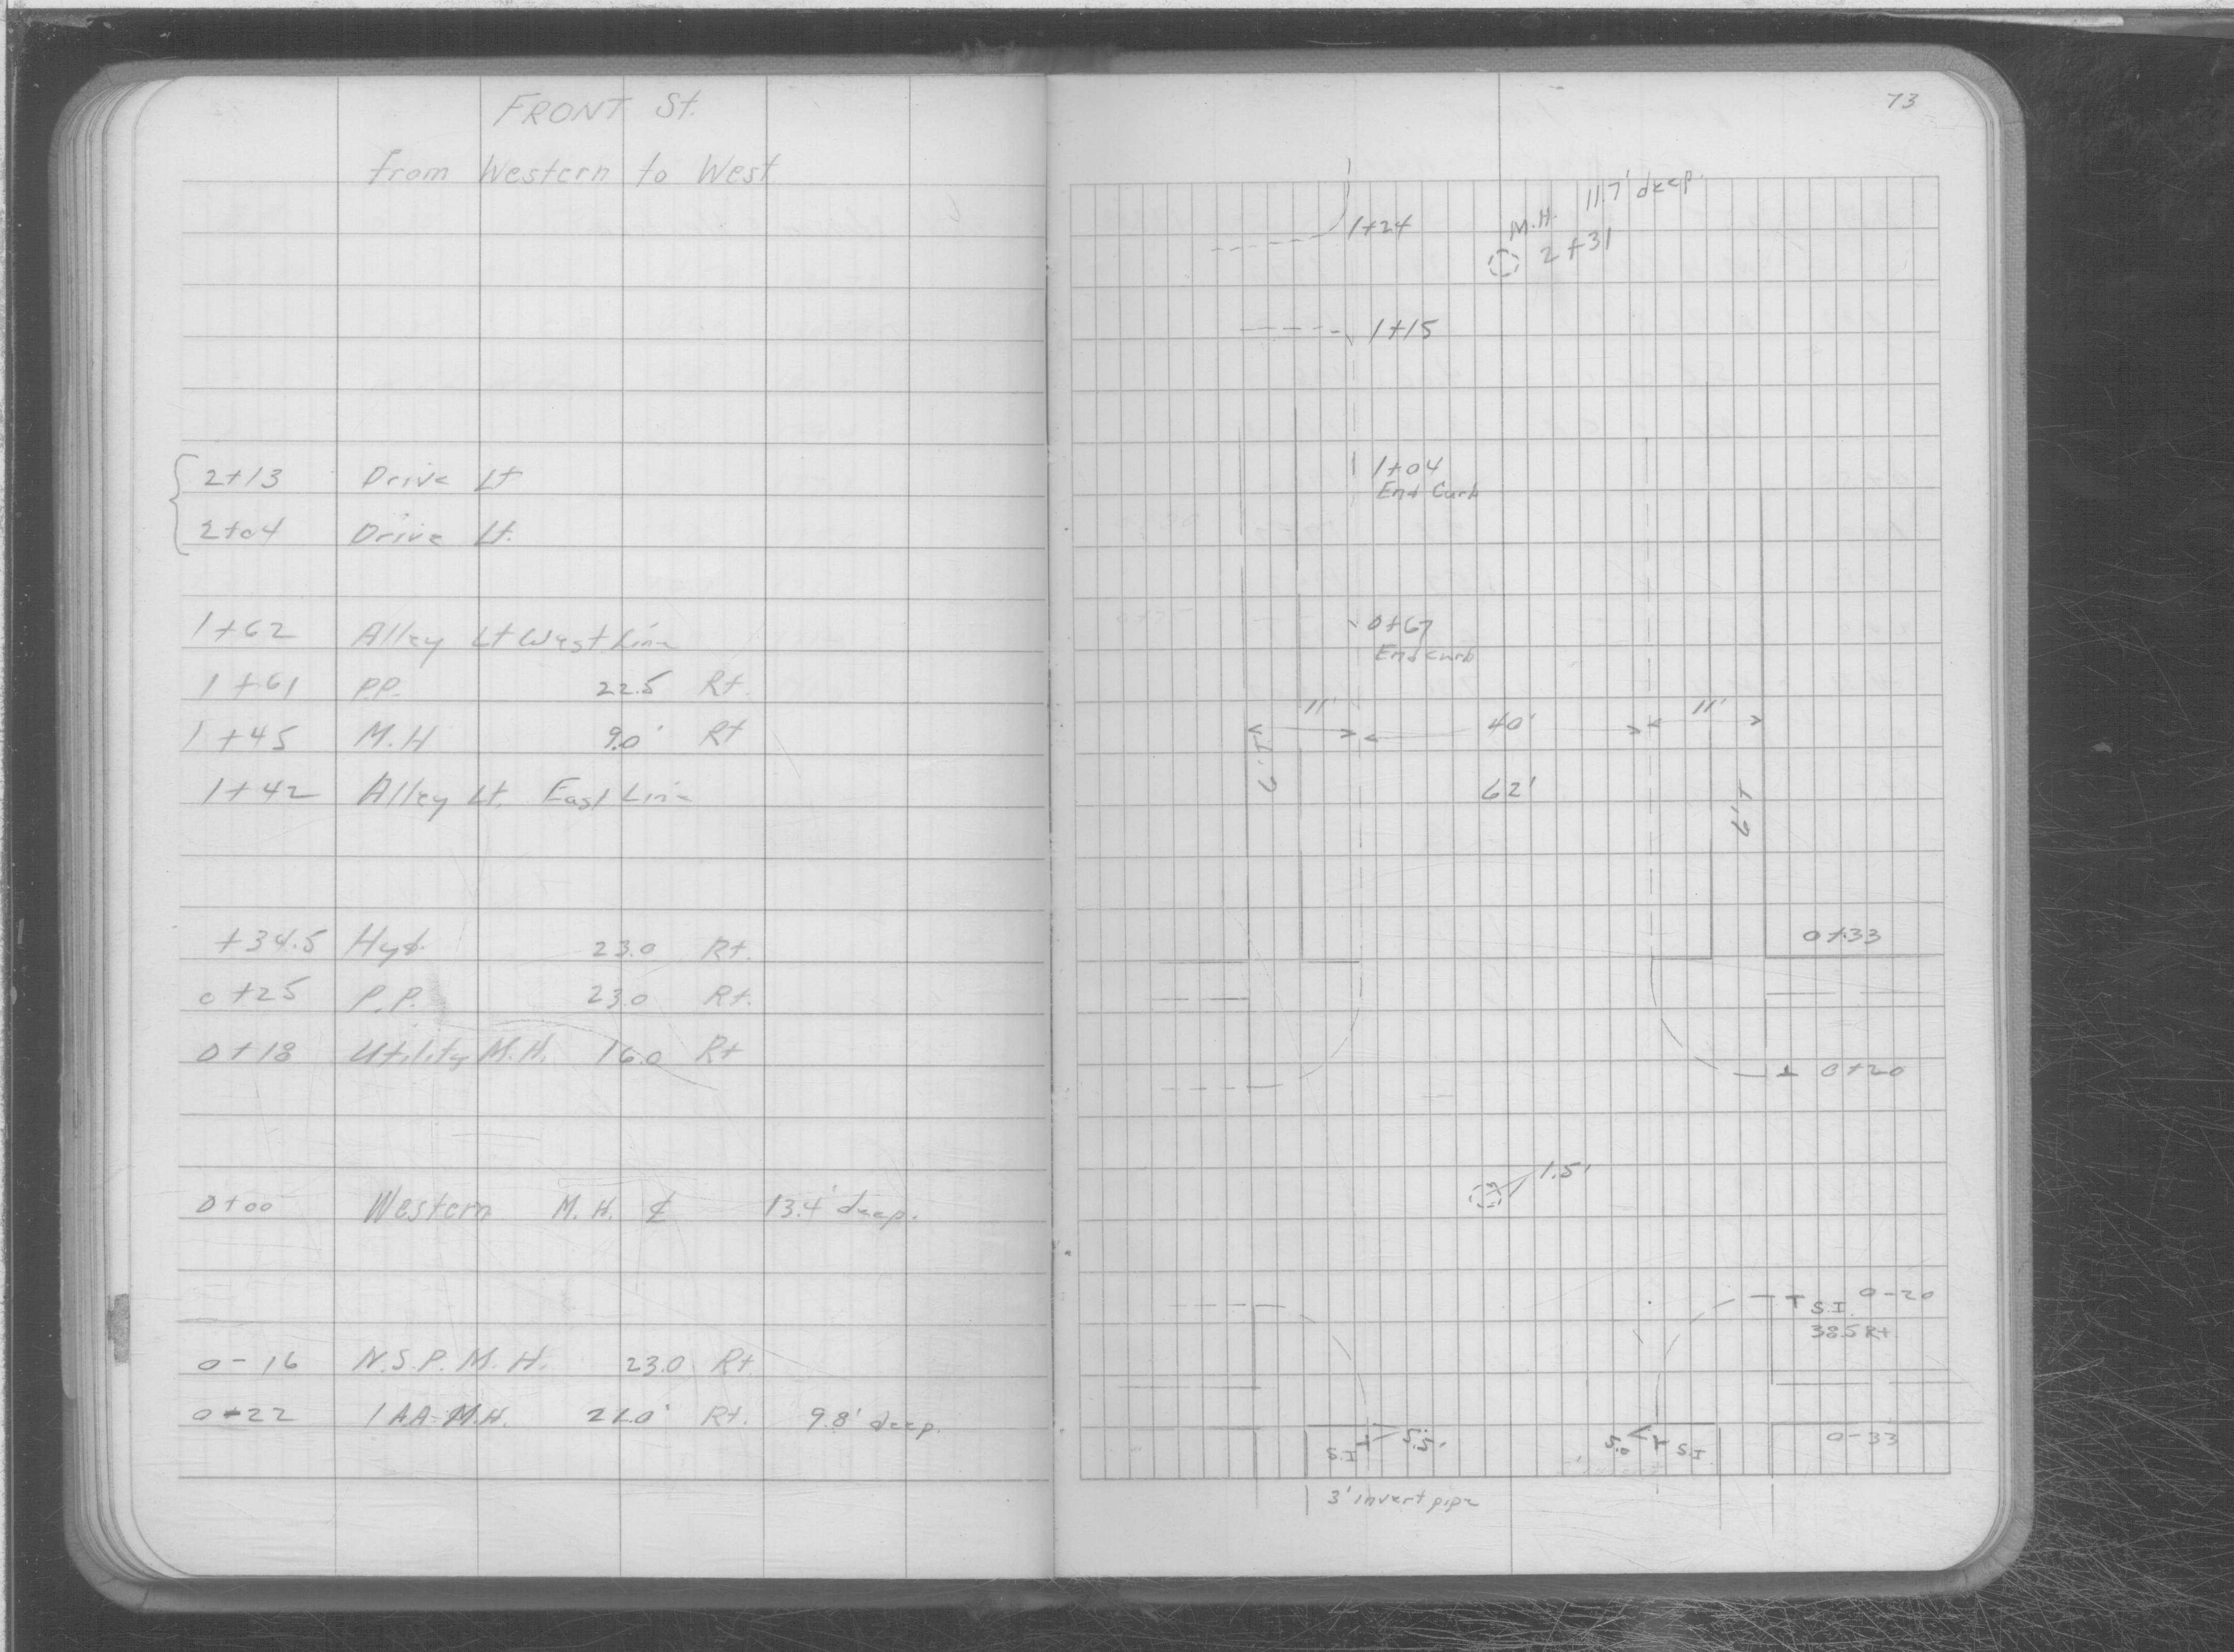 FRONT St.
from Western to West
2+13 Drive Lt
2+04 Drive Lt.
1+62 Alley Lt West Line
1+61 P.P. 22.5 Rt.
1+45 M.H 9.0' Rt
1+42 Alley Lt. East Line
+34.5 Hyd. 23.0 Rt.
0+25 P.P. 23.0 Rt.
0+18 Utility M.H. 16.0 Rt
0+00 Western M.H. ₵ 13.4' deep.
0-16 N.S.P. M.H. 23.0 Rt.
0-22 1AA-M.H. 21.0' Rt. 9.8' deep.
73
M.H. 11.7' deep.
1+24
2+31
1+15
1+04
End Curb
0+67
End curb
11' 40' 11'
62'
0+33
0+20
1.5'
0-20
S.I.
38.5 Rt
S.I. S.I.
0-33
3' invert pipe